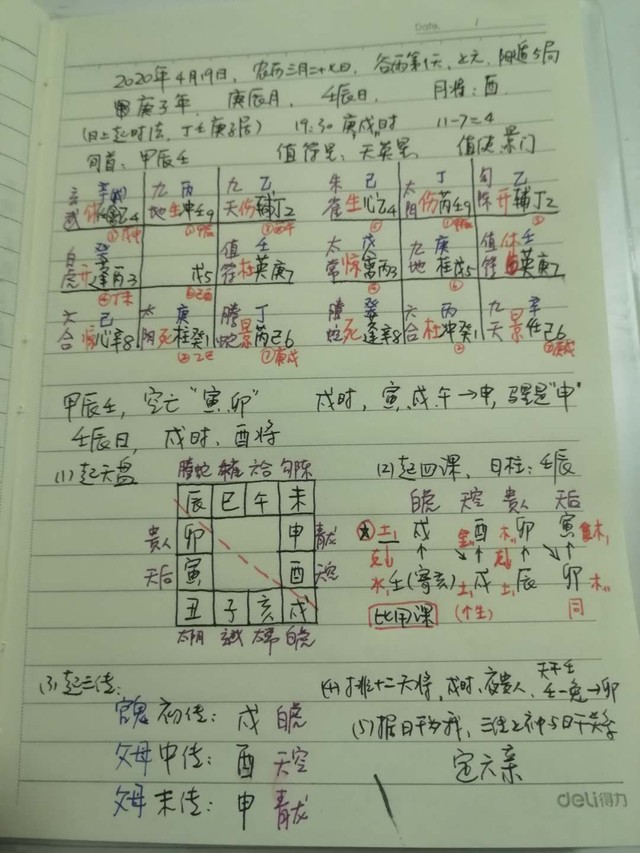 Date. 1
2020年4月19日，农历三月二十七日，谷雨第1天，上元，阳遁5局
庚子年，庚辰月，壬辰日，月将：酉
(日上起时法，丁壬庚子居) 19:30 庚戌时 11-7=4
旬首：甲辰壬 值符星：天英星 值使：景门
玄 九 丙 九 乙 朱 己 太 丁 勾 乙
武 地生冲壬9 天伤辅丁2 雀生心乙4 阴伤芮壬9 陈开辅丁2
白 太 戊 九 庚 值休壬
虎开蓬丙3 戊5 值符杜英庚7 常惊禽丙3 地柱戊5 符英庚7
六 己 太 庚 腾 丁 腾 癸 六 丙 九 辛
合惊心辛8 阴死柱癸1 蛇景芮己6 蛇死蓬辛8 合杜冲癸1 天景任己6
甲辰壬，空亡“寅.卯” 戌时，寅.戌.午→申，马星是“申”
壬辰日，戌时，酉将
(1)起天盘 腾蛇 朱雀 六合 勾陈 (2)起四课，日柱：壬辰
辰 巳 午 未 白虎 天空 贵人 天后
贵人 卯 申 青龙 土 戌 酉 木 卯 寅 木
天后 寅 酉 天空 水 壬(寄亥) 土 戌 土 辰 卯 木
丑 子 亥 戌 比用课 (个生) 同
太阴 玄武 太常 白虎
(3)起三传： (4)排十二天将，戌时，夜贵人，天干壬
壬→兔→卯
官鬼 初传：戌 白虎 (5)据日干为我，三传之神与日干关系
父母 中传：酉 天空 定六亲
父母 末传：申 青龙
deli得力